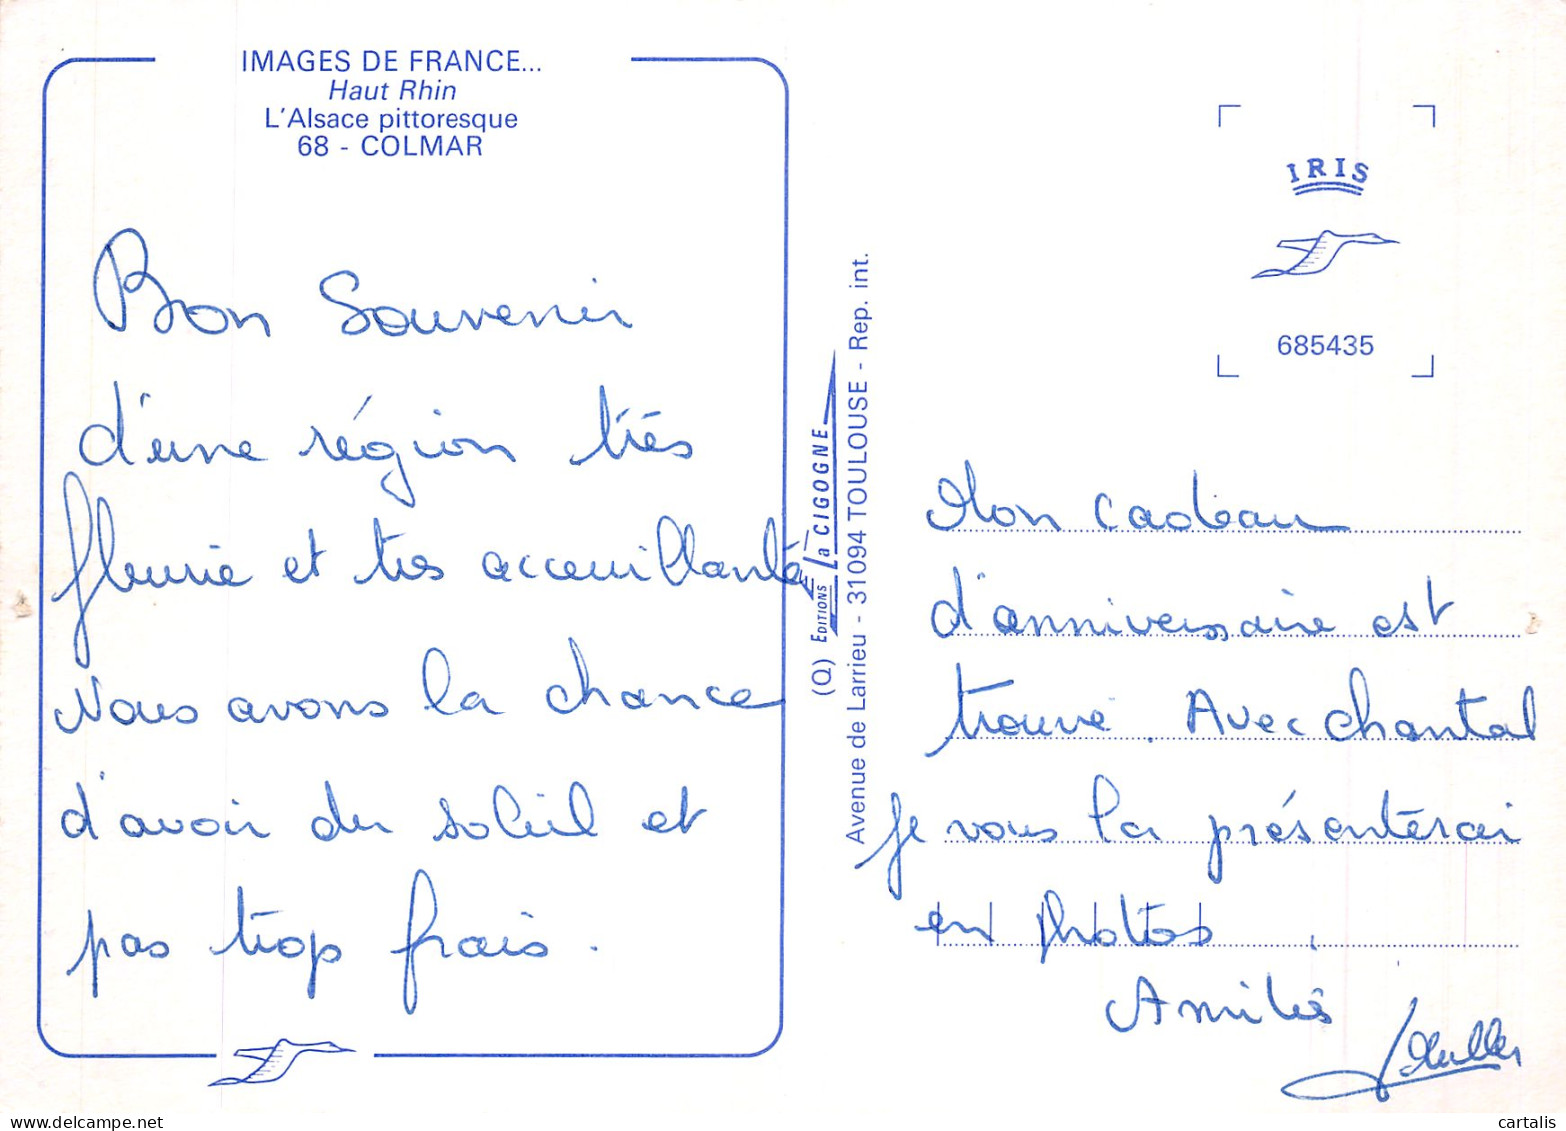 IMAGES DE FRANCE...
Haut Rhin
L'Alsace pittoresque
68 - COLMAR
Bon Souvenir
d'une région très
fleurie et tres acceuillante
Nous avons la chance
d'avoir du soleil et
pas trop frais.
(Q) EDITIONS La CIGOGNE
Avenue de Larrieu - 31094 TOULOUSE - Rep. int.
IRIS
685435
Mon cadeau
d'anniversaire est
trouvé. Avec chantal
je vous la présenterai
en photos.
Amitiés
cartalis